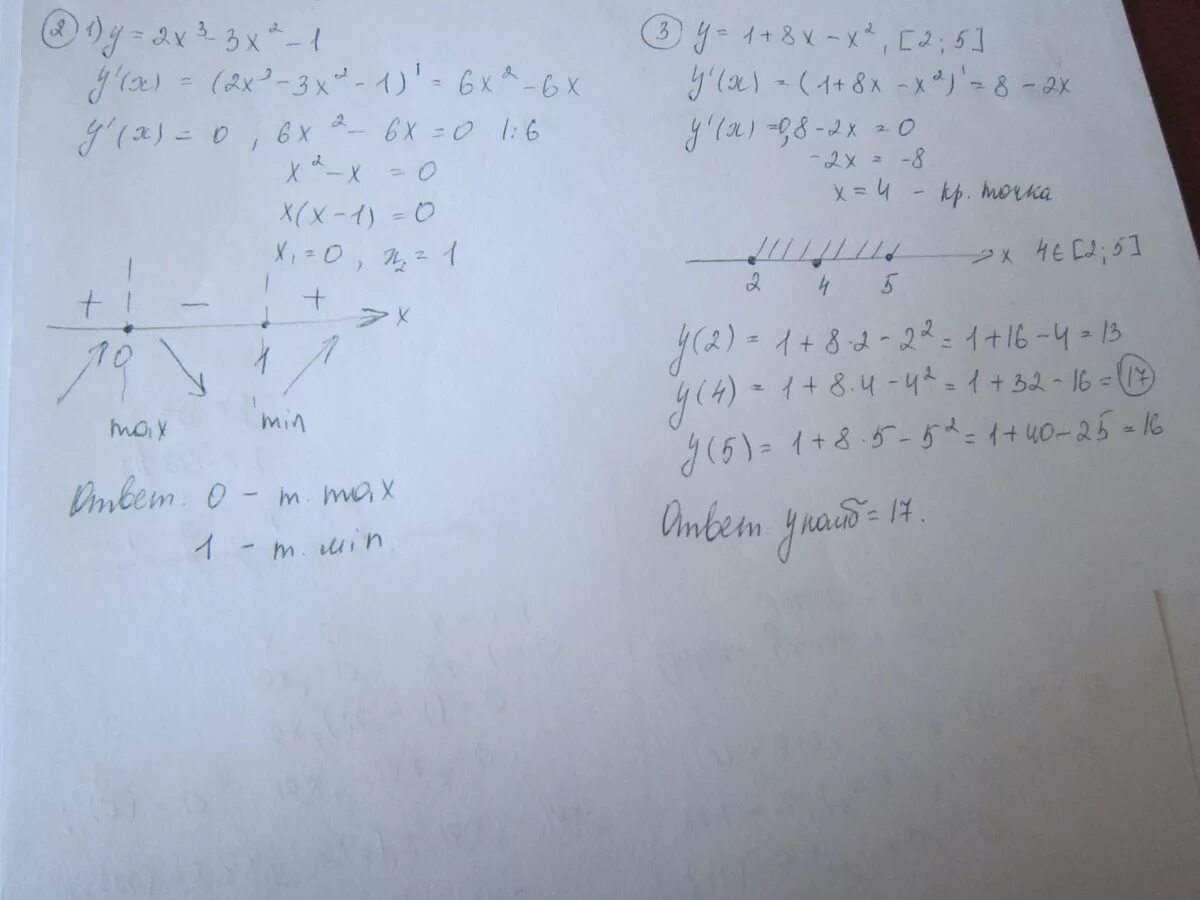 ② 1) y = 2x³ - 3x² - 1
y'(x) = (2x³ - 3x² - 1)' = 6x² - 6x
y'(x) = 0, 6x² - 6x = 0 |:6
x² - x = 0
x(x - 1) = 0
x₁ = 0, x₂ = 1
+ - + x
0 1
max min
Ответ. 0 - т. max
1 - т. min.
③ y = 1 + 8x - x², [2; 5]
y'(x) = (1 + 8x - x²)' = 8 - 2x
y'(x) = 0, 8 - 2x = 0
-2x = -8
x = 4 - кр. точка
x 4 ∈ [2; 5]
2 4 5
y(2) = 1 + 8·2 - 2² = 1 + 16 - 4 = 13
y(4) = 1 + 8·4 - 4² = 1 + 32 - 16 = 17
y(5) = 1 + 8·5 - 5² = 1 + 40 - 25 = 16
Ответ. y наиб = 17.